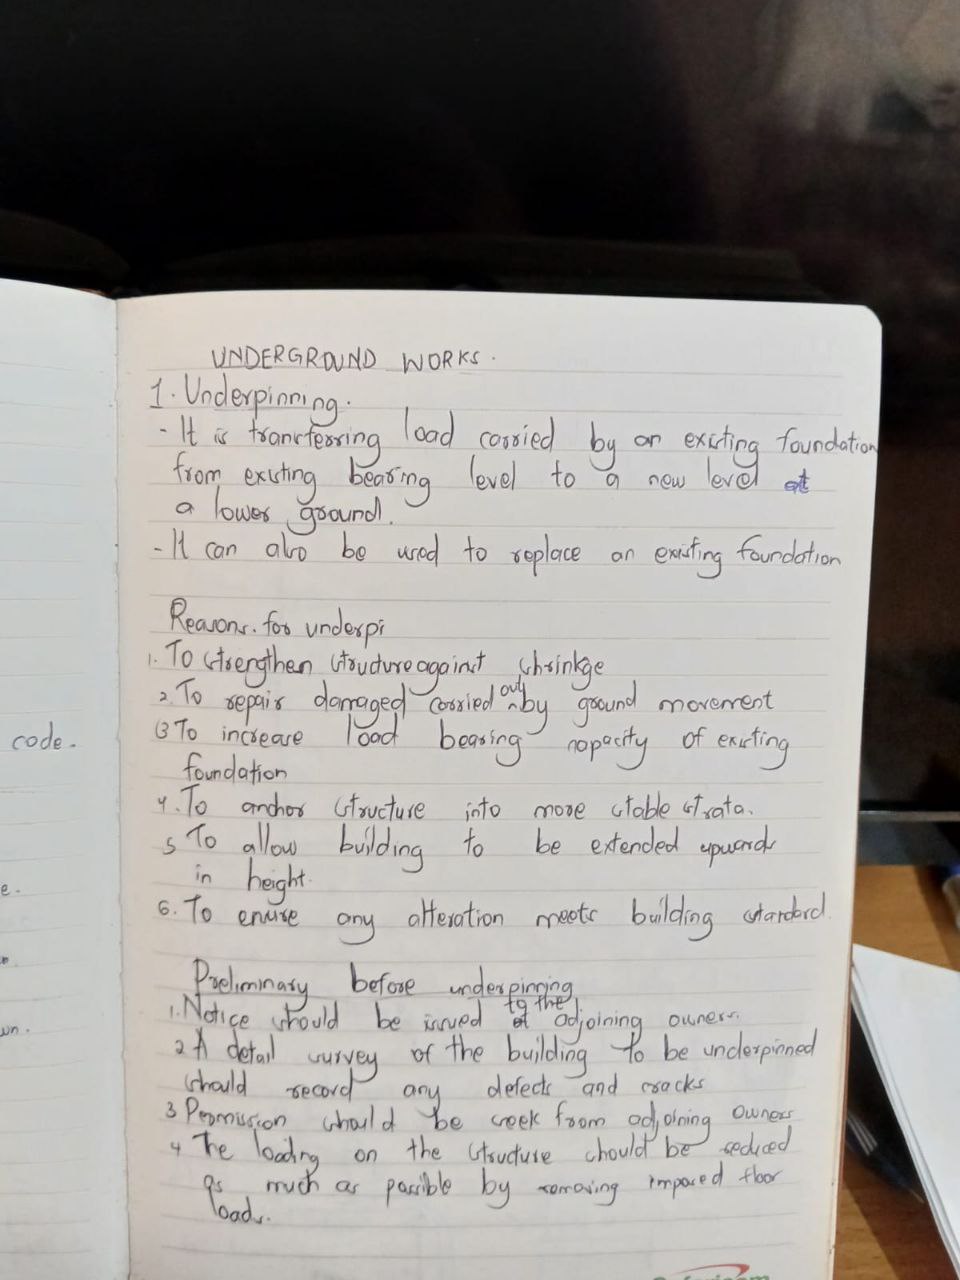 UNDERGROUND WORKS.
1. Underpinning.
- It is transferring load carried by an existing foundation
from existing bearing level to a new level at
a lower ground.
- It can also be used to replace an existing foundation
Reasons. for underpi
1. To strengthen structure against shrinkge
2. To repair damaged carried out by ground movement
3 To increase load bearing capacity of existing
foundation
4. To anchor structure into more stable strata.
5 To allow building to be extended upwards
in height.
6. To ensure any alteration meets building standard.
Preliminary before underpinning
1. Notice should be issued to the adjoining owners.
2 A detail survey of the building to be underpinned
should record any defects and cracks
3 Permission should be seek from adjoining owners
4 The loading on the structure should be reduced
as much as possible by removing imposed floor
loads.
code.